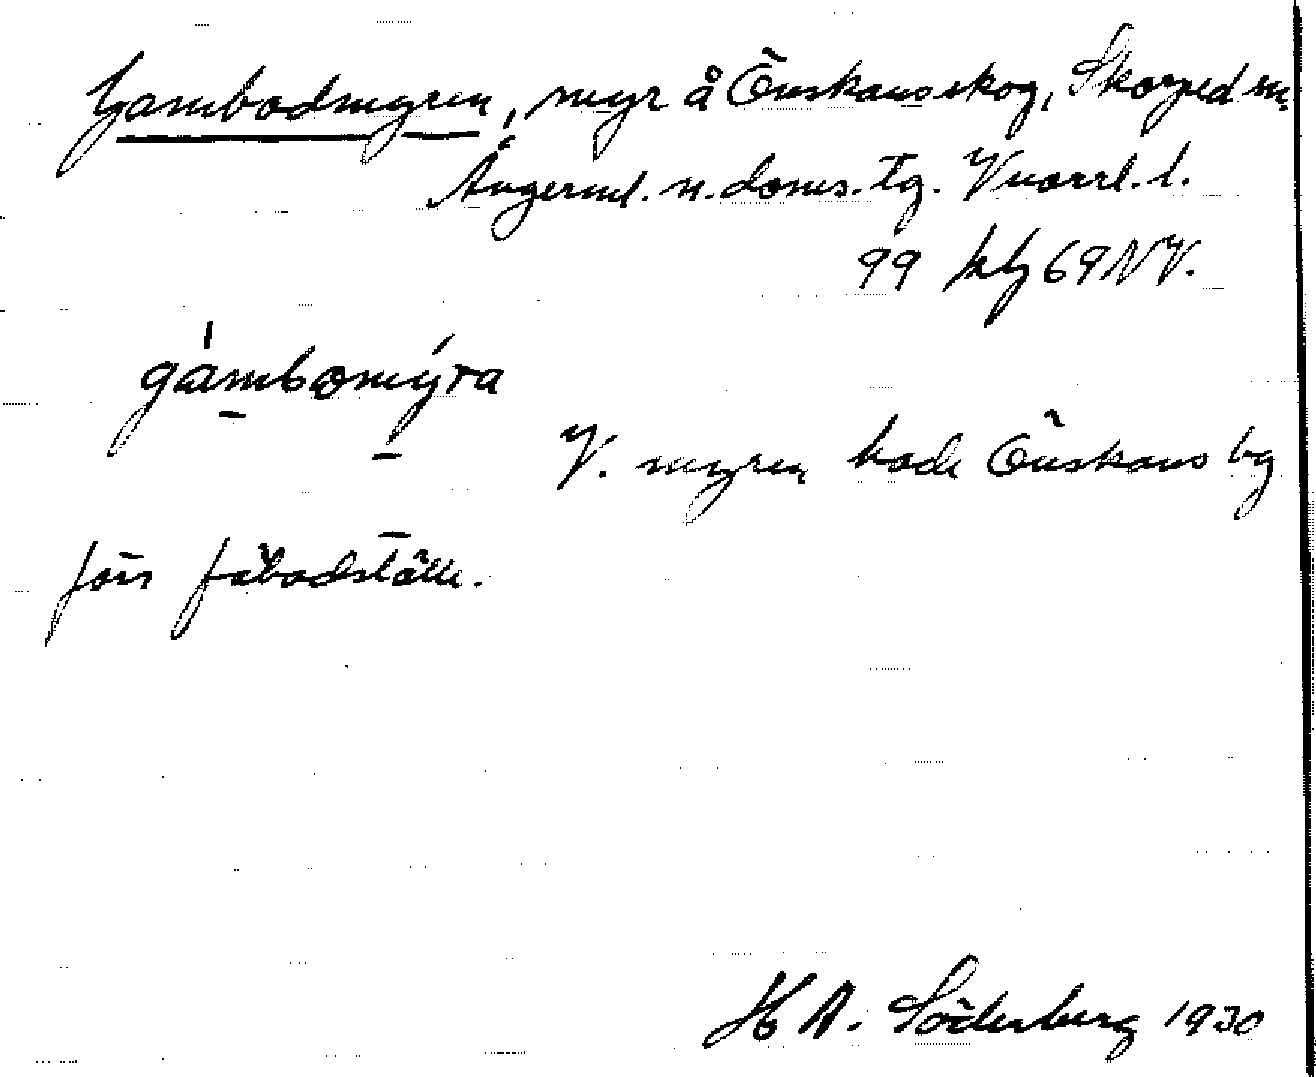 Gambodmyren, myr å Önskans skog, Skorped sn,
Ångerml. n. doms. tg. Vnorrl. l.
99 kbl 69 NV.
gámbomýra
V. myren hade Önskans by
förr fäbodställe.
H A. Söderberg 1930